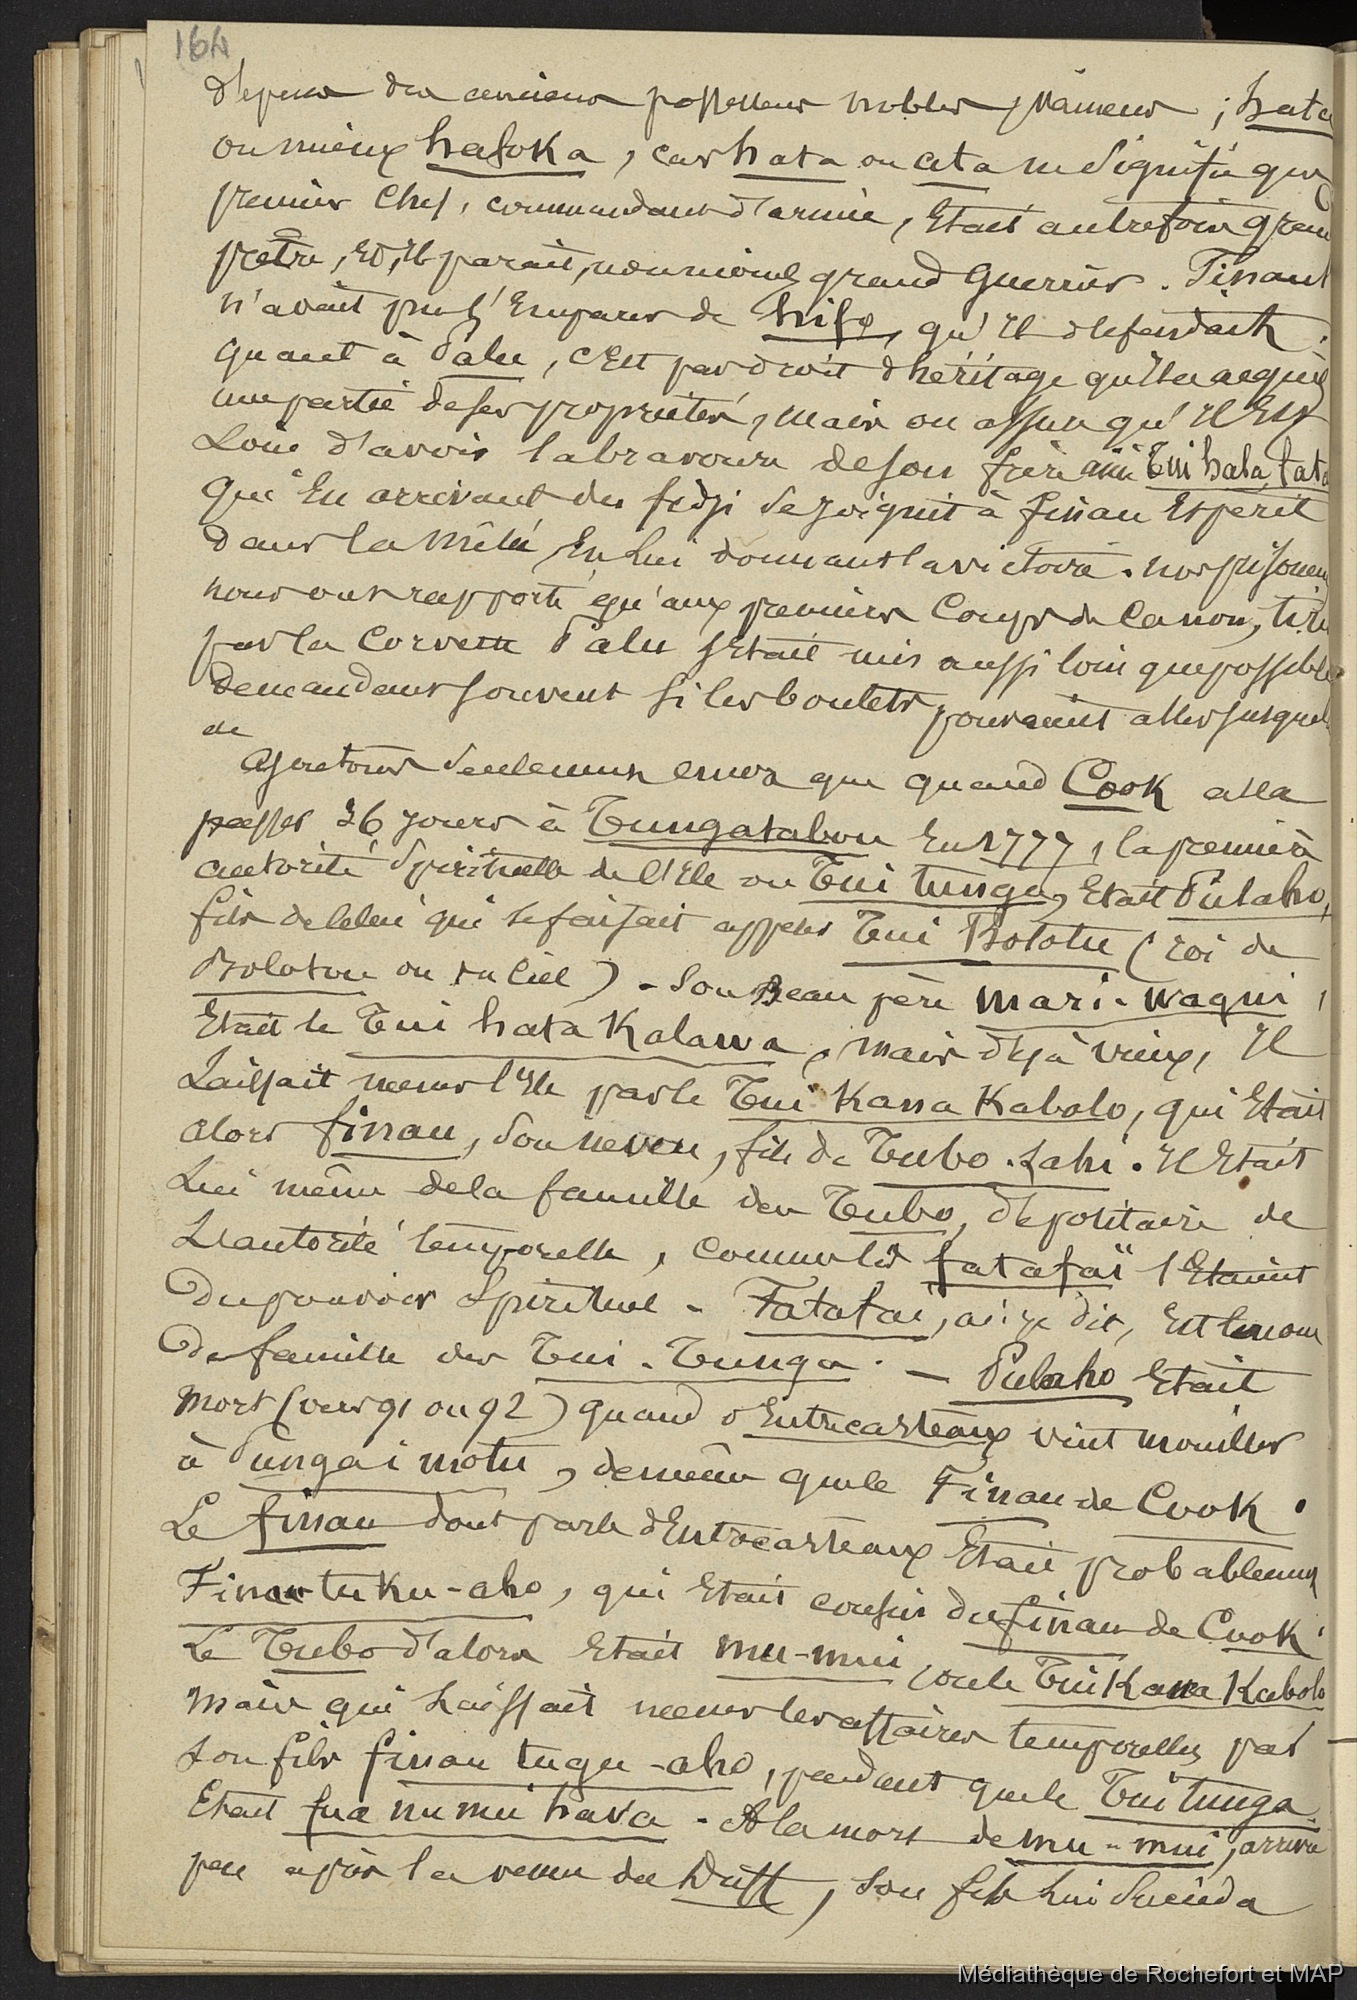 164
des anciens possesseurs nobles, vaincus ; hata
ou mieux hafoka, car hata ou ata ne signifie que
premier Chef, commandant d'armée, Etait autrefois grand
prêtre, Et, il parait, non moins grand Guerrier. Finau
n'avait pu s'Emparer de hifo, qu'il defendait.
quant à Palu, c'Est par droit d'héritage qu'il a acquis
une partie de ses proprietés, mais on assure qu'il Est
Loin d'avoir la bravoure de son frère ainé Tui hala fata
qui En arrivant des fidji se joignit à finau Et périt
dans la mêlée En lui donnant la victoire. nos prisonniers
nous ont rapporté qu'aux premiers Coups de Canon, tirés
par la Corvette Palu s'Etait mis aussi loin que possible
demandant souvent si les boulets pouvaient aller jusque là
que quand Cook alla
passer 26 jours à Tungatabou En 1777, la première
autorité Spirituelle de l'Ile ou Tui tunga, Etait Pulaho,
fils de celui qui se faisait appeler Tui Bolotu (roi de
Bolotou ou du Ciel) - Son Beau père Mari-waqui,
Etait le Tui hata Kalawa, mais déjà vieux, Il
Laissait mener l'Ile par le Tui Kana Kabolo, qui Etait
alors finau, Son neveu, fils de Tubo-Lahi. Il Etait
Lui même de la famille des Tubo, dépositaire de
L'autorité temporelle, comme les fatafaï l'Etaient
Du pouvoir Spirituel - Fatafai, ai-je dit, Est le nom
De famille des Tui-Tunga. — Pulaho Etait
mort (vers 91 ou 92) quand d'Entrecasteaux vint mouiller
à Pungaimotu, de même que le Finau de Cook.
Le finau dont parle d'Entrecasteaux Etait probablement
Finau tuku-aho, qui Etait cousin du finau de Cook.
Le Tubo d'alors Etait mu-mui, ou le Tui Kana Kabolo
mais qui Laissait mener les affaires temporelles par
son fils finau tugu-aho, pendant que le Tui tunga
Etait fua nu nui hava - A la mort de mu-mui, arrivée
peu après la venue du Duff, son fils lui succéda
Médiathèque de Rochefort et MAP